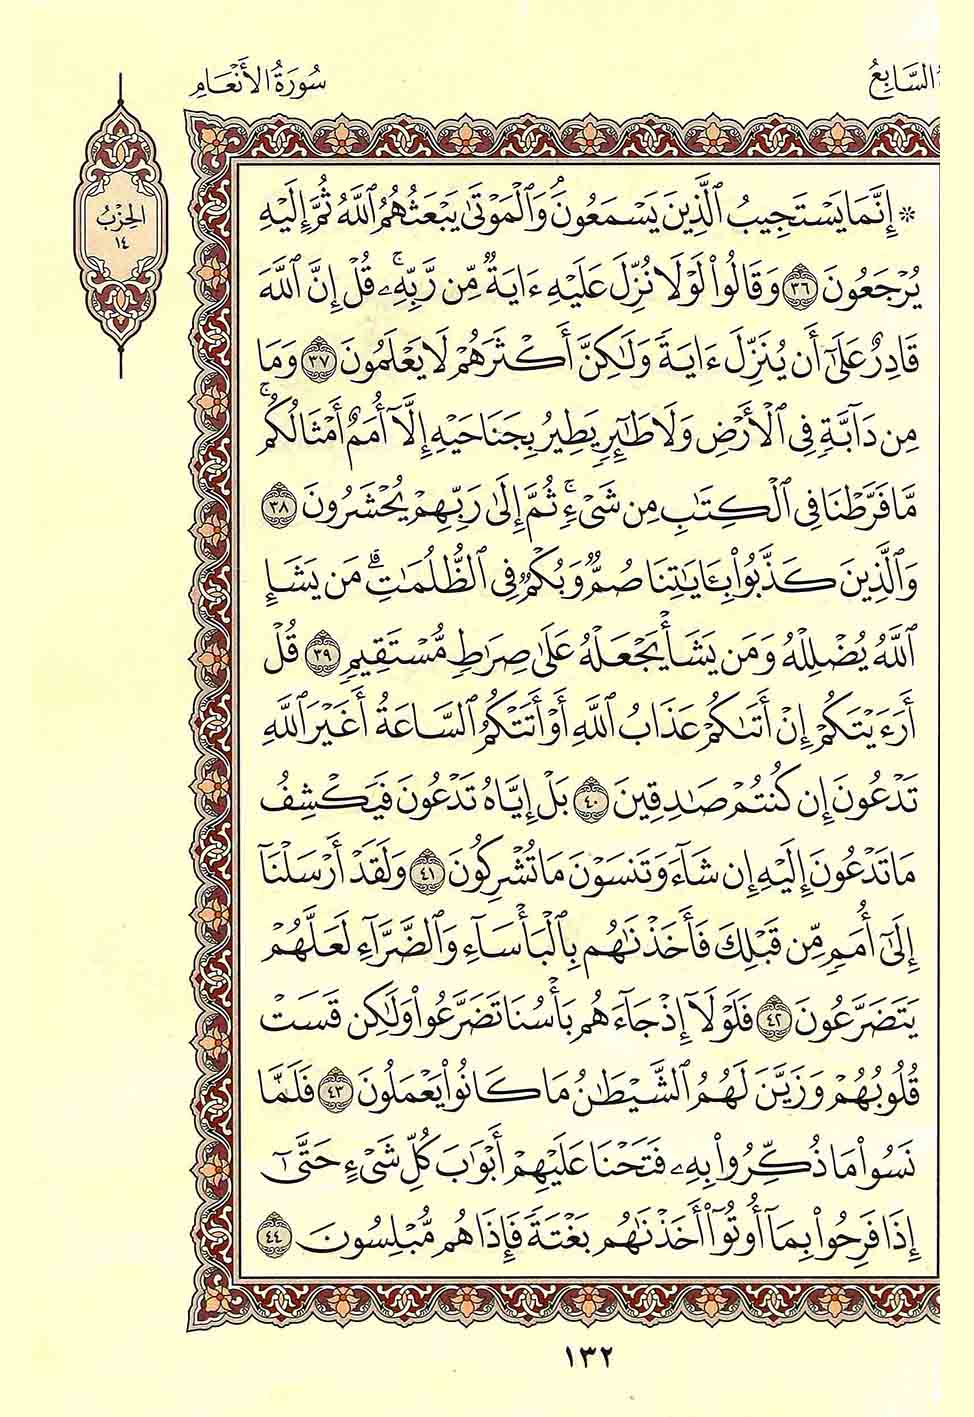 السَّابِعُ
سُورَةُ الأَنْعَامِ
الحِزْبُ
١٤
۞ إِنَّمَا يَسْتَجِيبُ ٱلَّذِينَ يَسْمَعُونَۘ وَٱلْمَوْتَىٰ يَبْعَثُهُمُ ٱللَّهُ ثُمَّ إِلَيْهِ
يُرْجَعُونَ ٣٦ وَقَالُوا۟ لَوْلَا نُزِّلَ عَلَيْهِ ءَايَةٌ مِّن رَّبِّهِۦۚ قُلْ إِنَّ ٱللَّهَ
قَادِرٌ عَلَىٰٓ أَن يُنَزِّلَ ءَايَةً وَلَـٰكِنَّ أَكْثَرَهُمْ لَا يَعْلَمُونَ ٣٧ وَمَا
مِن دَآبَّةٍ فِى ٱلْأَرْضِ وَلَا طَـٰٓئِرٍ يَطِيرُ بِجَنَاحَيْهِ إِلَّآ أُمَمٌ أَمْثَالُكُمۚ
مَّا فَرَّطْنَا فِى ٱلْكِتَـٰبِ مِن شَىْءٍۚ ثُمَّ إِلَىٰ رَبِّهِمْ يُحْشَرُونَ ٣٨
وَٱلَّذِينَ كَذَّبُوا۟ بِـَٔايَـٰتِنَا صُمٌّ وَبُكْمٌ فِى ٱلظُّلُمَـٰتِۗ مَن يَشَإِ
ٱللَّهُ يُضْلِلْهُ وَمَن يَشَأْ يَجْعَلْهُ عَلَىٰ صِرَٰطٍ مُّسْتَقِيمٍ ٣٩ قُلْ
أَرَءَيْتَكُمْ إِنْ أَتَىٰكُمْ عَذَابُ ٱللَّهِ أَوْ أَتَتْكُمُ ٱلسَّاعَةُ أَغَيْرَ ٱللَّهِ
تَدْعُونَ إِن كُنتُمْ صَـٰدِقِينَ ٤٠ بَلْ إِيَّاهُ تَدْعُونَ فَيَكْشِفُ
مَا تَدْعُونَ إِلَيْهِ إِن شَآءَ وَتَنسَوْنَ مَا تُشْرِكُونَ ٤١ وَلَقَدْ أَرْسَلْنَآ
إِلَىٰٓ أُمَمٍ مِّن قَبْلِكَ فَأَخَذْنَـٰهُم بِٱلْبَأْسَآءِ وَٱلضَّرَّآءِ لَعَلَّهُمْ
يَتَضَرَّعُونَ ٤٢ فَلَوْلَآ إِذْ جَآءَهُم بَأْسُنَا تَضَرَّعُوا۟ وَلَـٰكِن قَسَتْ
قُلُوبُهُمْ وَزَيَّنَ لَهُمُ ٱلشَّيْطَـٰنُ مَا كَانُوا۟ يَعْمَلُونَ ٤٣ فَلَمَّا
نَسُوا۟ مَا ذُكِّرُوا۟ بِهِۦ فَتَحْنَا عَلَيْهِمْ أَبْوَٰبَ كُلِّ شَىْءٍ حَتَّىٰٓ
إِذَا فَرِحُوا۟ بِمَآ أُوتُوٓا۟ أَخَذْنَـٰهُم بَغْتَةً فَإِذَا هُم مُّبْلِسُونَ ٤٤
١٣٢